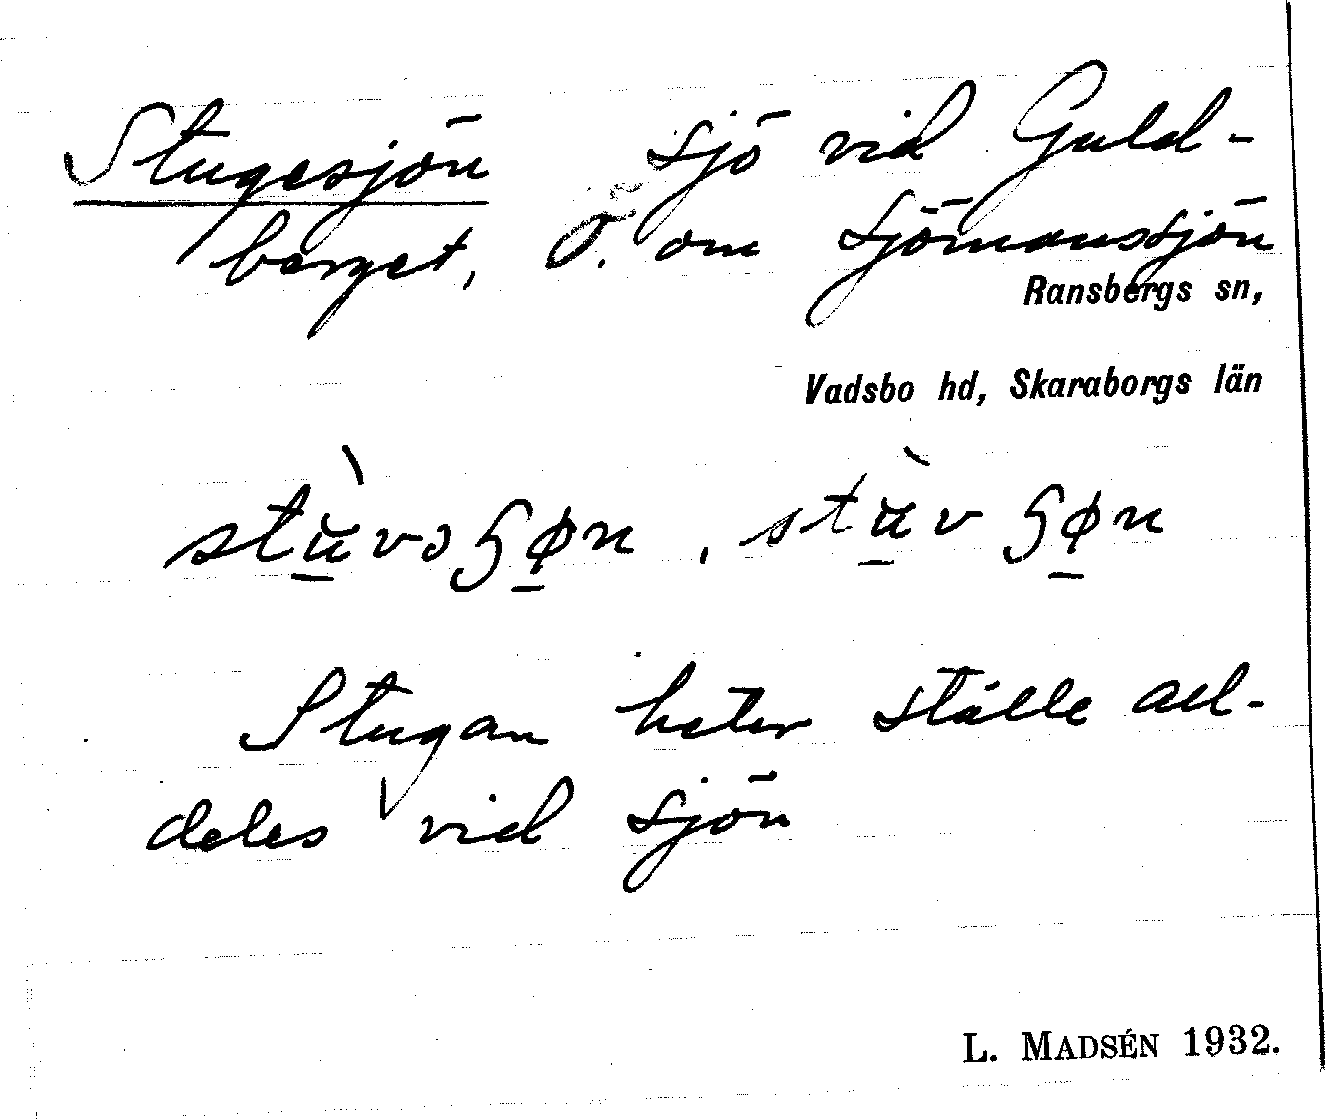 Stugesjön sjö vid Guld-
berget, Ö. om Sjömanssjön
Ransbergs sn,
Vadsbo hd, Skaraborgs län
Stugan heter ställe all-
deles vid sjön
L. MADSÉN 1932.